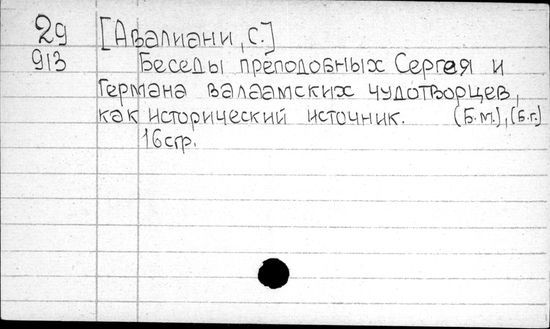 29 [Авалиани, С.]
913 Беседы преподобных Сергея и
Германа валаамских чудотворцев,
как исторический источник. (Б.м.), (Б.г.)
16стр.